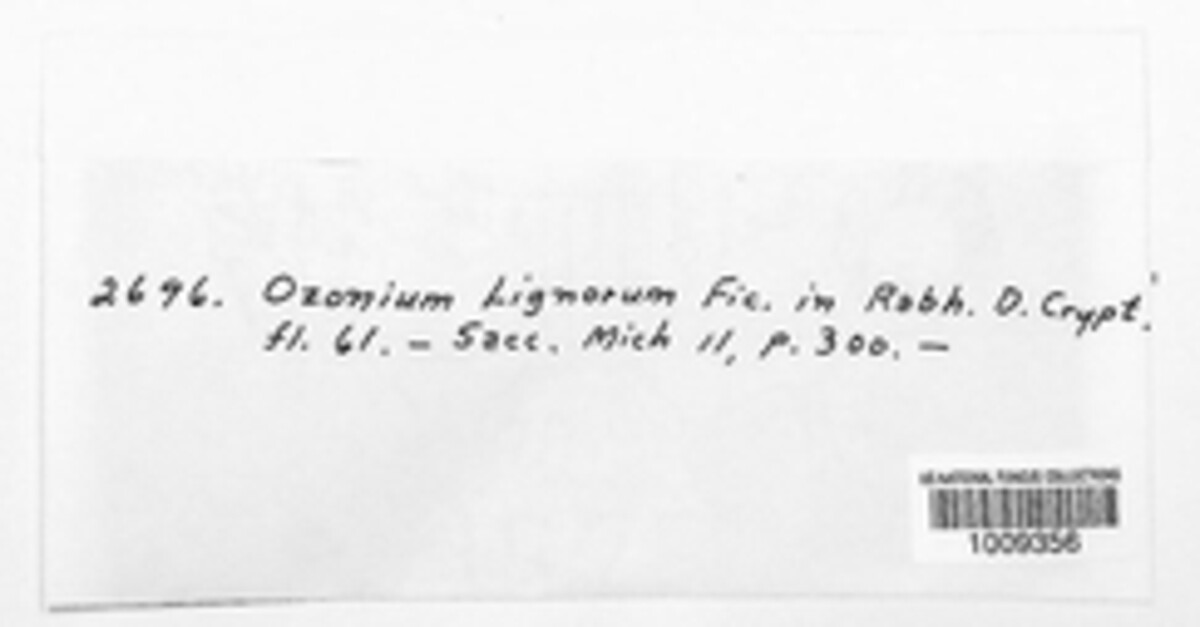 2696. Ozonium Lignorum Fic. in Rabh. D. Crypt.
fl. 61. – Sacc. Mich 11, p. 300. –
US NATIONAL FUNGUS COLLECTIONS
1009356